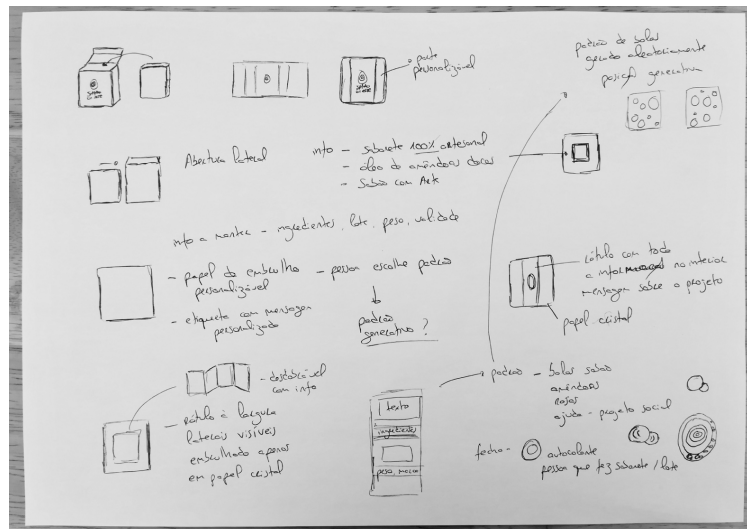 SABÃO
COM ARTE
SABÃO
COM ARTE
parte
personalizável
padrão de bolas
gerado aleatoriamente
generativa
Abertura lateral
info - sabonete 100% artesanal
- óleo de amêndoas doces
- Sabão com Arte
info a manter - ingredientes, lote, peso, validade
- papel de embrulho
personalizável
- pessoa escolhe padrão
padrão
generativo?
- etiqueta com mensagem
personalizada
rótulo com toda
a info
no interior
mensagem sobre o projeto
papel cristal
- desdobrável
com info
- rótulo à largura
laterais visíveis
embrulhado apenas
em papel cristal
texto
ingredientes
peso, marca
padrão - bolas sabão
amêndoas
rosas
ajuda - projeto social
fecho -
autocolante
pessoa que fez sabonete / lote